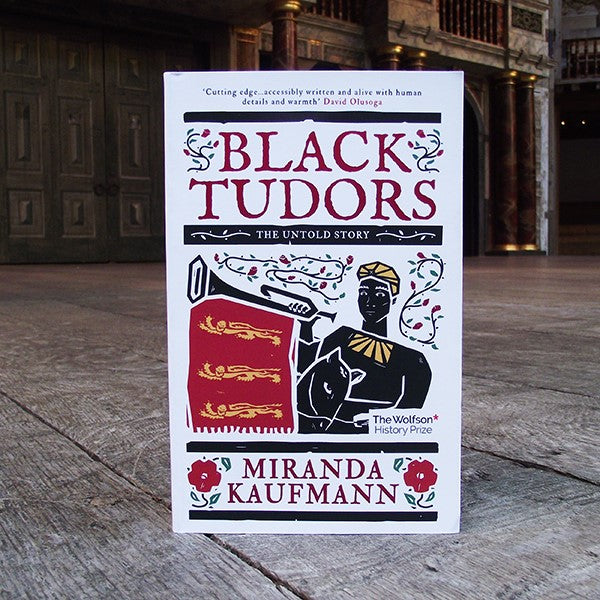 'Cutting edge...accessibly written and alive with human
details and warmth' David Olusoga
BLACK
TUDORS
THE UNTOLD STORY
The Wolfson*
History Prize
MIRANDA
KAUFMANN